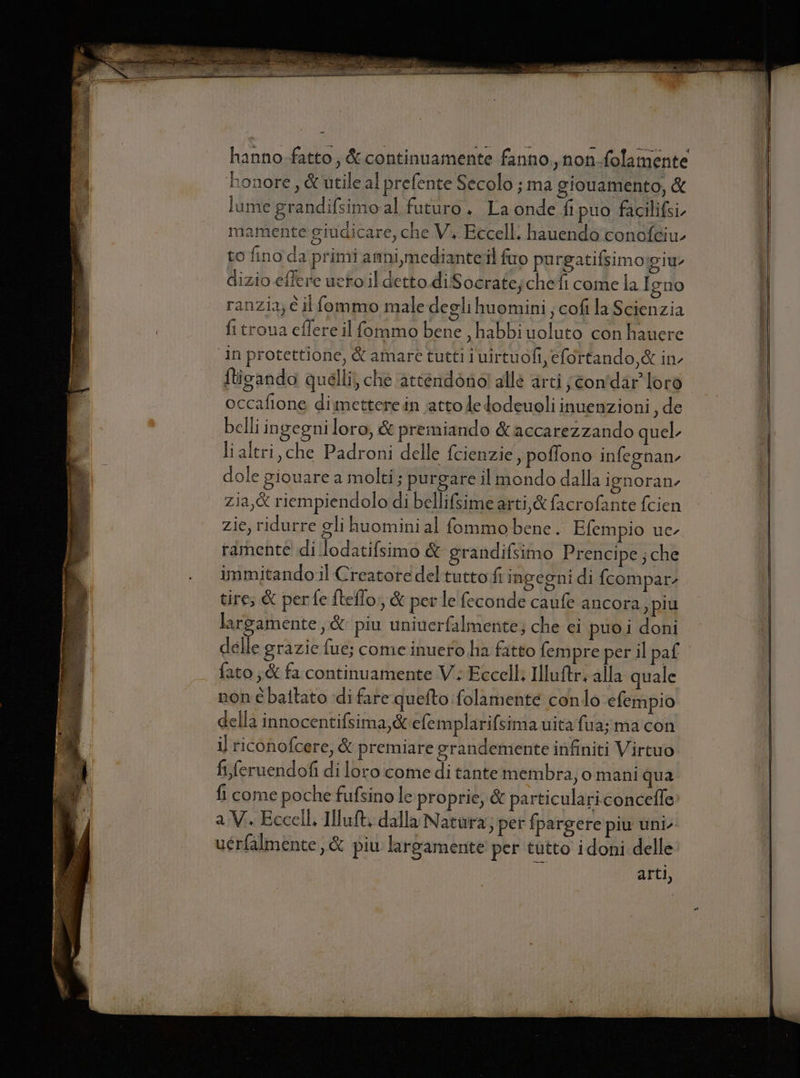 hanno fatto, & continuamente fanno, non ſolamente
honore, & utile al preſente Secolo; ma giouamento, &
lume grandiſsimo al futuro. La onde ſi puo faciliſsi-
mamente giudicare, che V. Eccell. hauendo conoſciu-
to ſino da primi anni, mediante il ſuo purgatiſsimo giu-
dizio eſſere uero il detto di Socrate; che ſi come la Igno
ranzia, è il ſommo male degli huomini, coſi la Scienzia
ſi troua eſſere il ſommo bene, habbi uoluto con hauere
in protettione, & amare tutti i uirtuoſi, eſortando, & in-
ſtigando quelli, che attendono alle arti, con dar' loro
occaſione di mettere in atto le lodeuoli inuenzioni, de
belli ingegni loro, & premiando & accarezzando quel-
li altri, che Padroni delle ſcienzie, poſſono inſegnan-
dole giouare a molti; purgare il mondo dalla ignoran-
zia, & riempiendolo di belliſsime arti, & ſacroſante ſcien
zie, ridurre gli huomini al ſommo bene. Eſempio ue-
ramente di lodatiſsimo & grandiſsimo Prencipe; che
immitando il Creatore del tutto ſi ingegni di ſcompar-
tire, & per ſe ſteſſo, & per le ſeconde cauſe ancora, piu
largamente, & piu uniuerſalmente, che ei puo i doni
delle grazie ſue; come inuero ha fatto ſempre per il paſ
ſato, & fa continuamente V. Eccell. Illuſtr. alla quale
non è baſtato di fare queſto ſolamente con lo eſempio
della innocentiſsima, & eſemplariſsima uita ſua; ma con
il riconoſcere, & premiare grandemente infiniti Virtuo
ſi, ſeruendoſi di loro come di tante membra, o mani qua
ſi come poche fuſsino le proprie, & particulari conceſſe
a V. Eccell. Illuſt. dalla Natura, per ſpargere piu uni-
uerſalmente, & piu largamente per tutto i doni delle
arti,